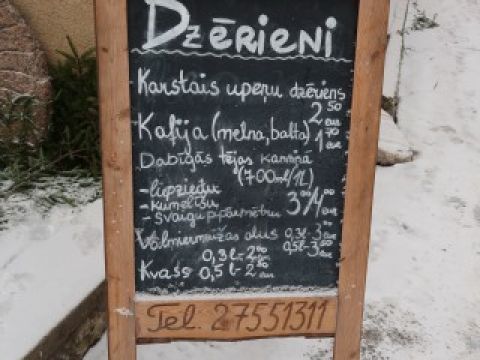 Dzērieni
Karstais upeņu dzēriens
2.50 eur
Kafija (melna, balta) 1.70 eur
Dabīgās tējas kannīņa
(700ml/1L)
- liepziedu
- kumelīšu
- svaigu piparmētru 3.00/4.00 eur
Valmiermuižas alus 0,3l-3 eur
0,3l-2.00 0,5l-3.00 eur
Kvass 0,5l-2.50 eur
Tel. 27551311